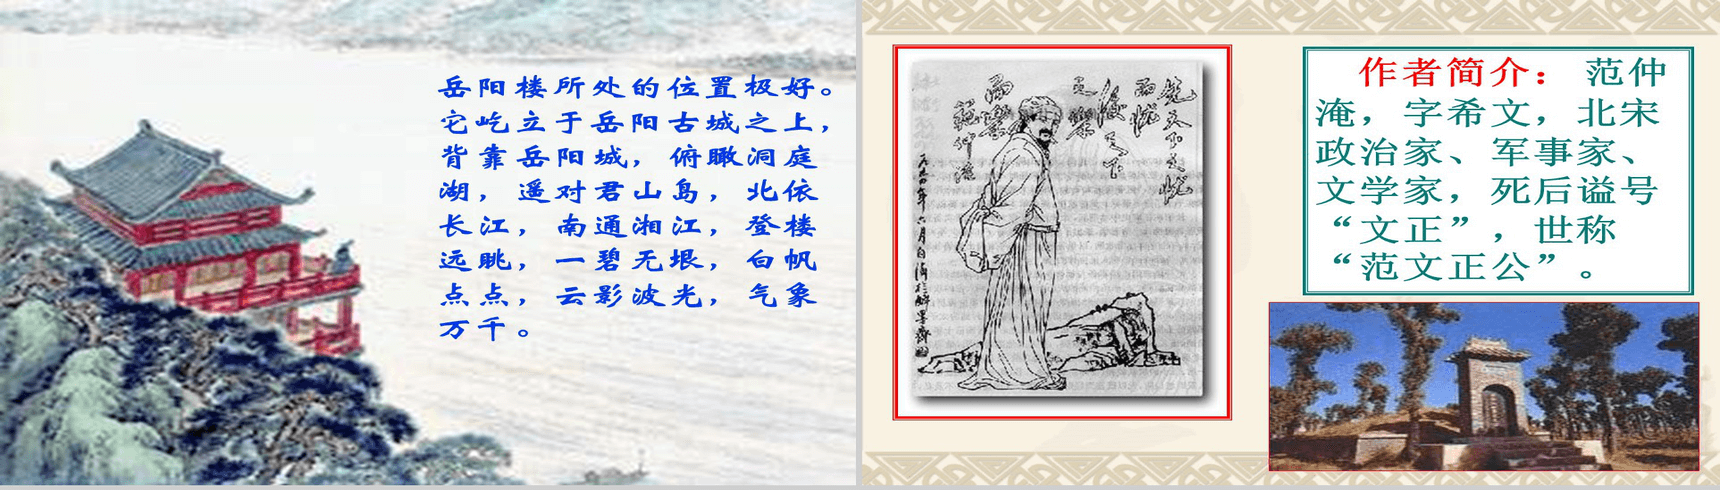 岳阳楼所处的位置极好。
它屹立于岳阳古城之上，
背靠岳阳城，俯瞰洞庭
湖，遥对君山岛，北依
长江，南通湘江，登楼
远眺，一碧无垠，白帆
点点，云影波光，气象
万千。
先天下之忧
而忧
后天下
之乐
而乐
范仲淹
作者简介：范仲
淹，字希文，北宋
政治家、军事家、
文学家，死后谥号
“文正”，世称
“范文正公”。